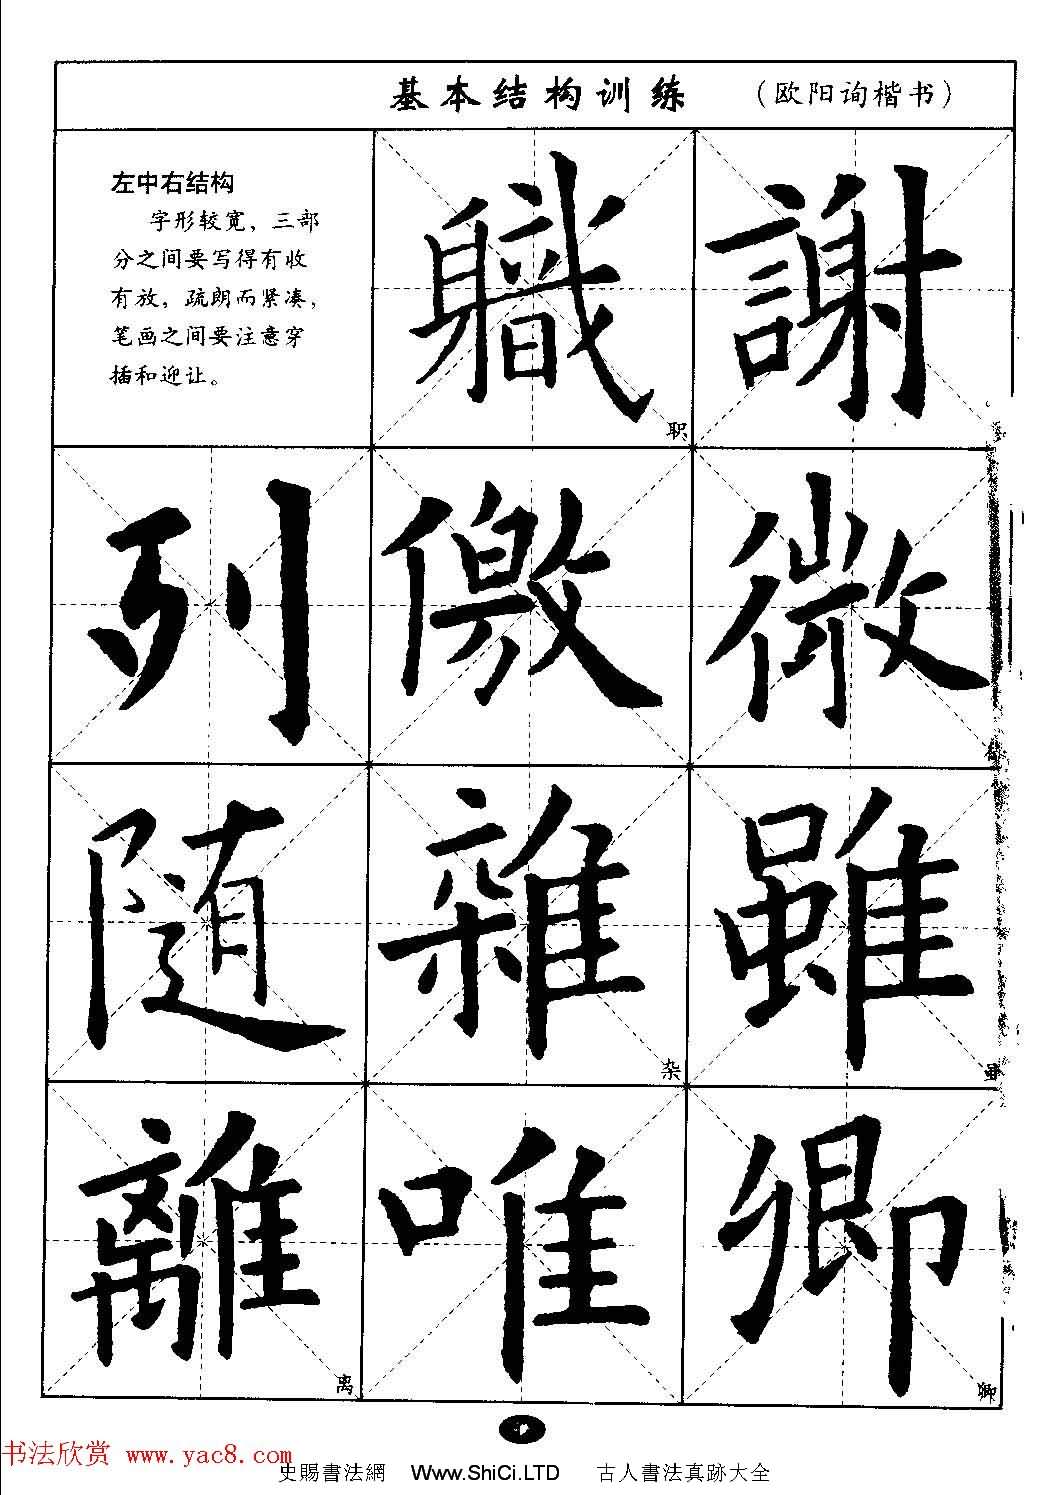 基本结构训练 （欧阳询楷书）
左中右结构
字形较宽，三部
分之间要写得有收
有放，疏朗而紧凑，
笔画之间要注意穿
插和迎让。
職 謝
职
列 儌 微
随 雜 雖
杂 虽
離 唯 卿
离 卿
书法欣赏 www.yac8.com
史賜書法網 Www.ShiCi.LTD 古人書法真跡大全